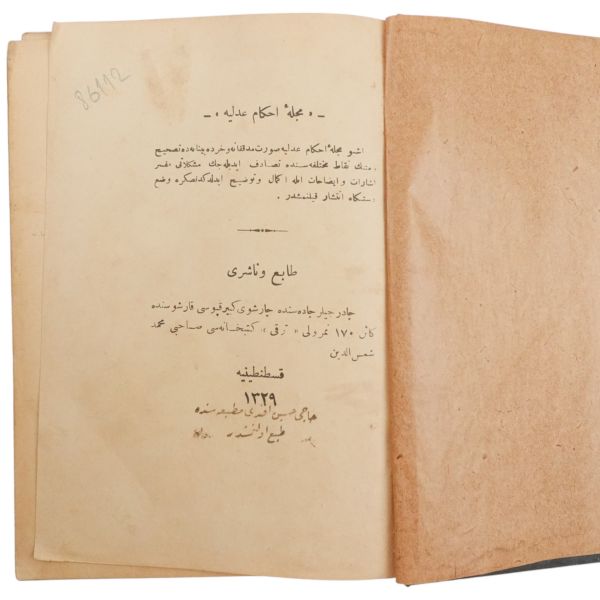 86112
- « مجلهٔ احكام عدليه » -
اشبو مجلهٔ احكام عدليه صورت مدققانه وخرده بينانه ده تصحيح
نقاط مختلفه سنده تصادف ايديله جك مشكلاتی مفسر
اشارات و ايضاحات ايله اكمال و توضيح ايدلدكدنصكره وضع
دستكاه انتشار قيلنمشدر .
طابع وناشری
چادرجيلر جاده سنده چارشوی كبير قپوسی قارشوسنده
كائن ١٧٠ نمرولی « ترقی » كتبخانه سی صاحبی محمد
شمس الدين
قسطنطينيه
١٣٢٩
حاجی حسين افندی مطبعه سنده
طبع اولنمشدر